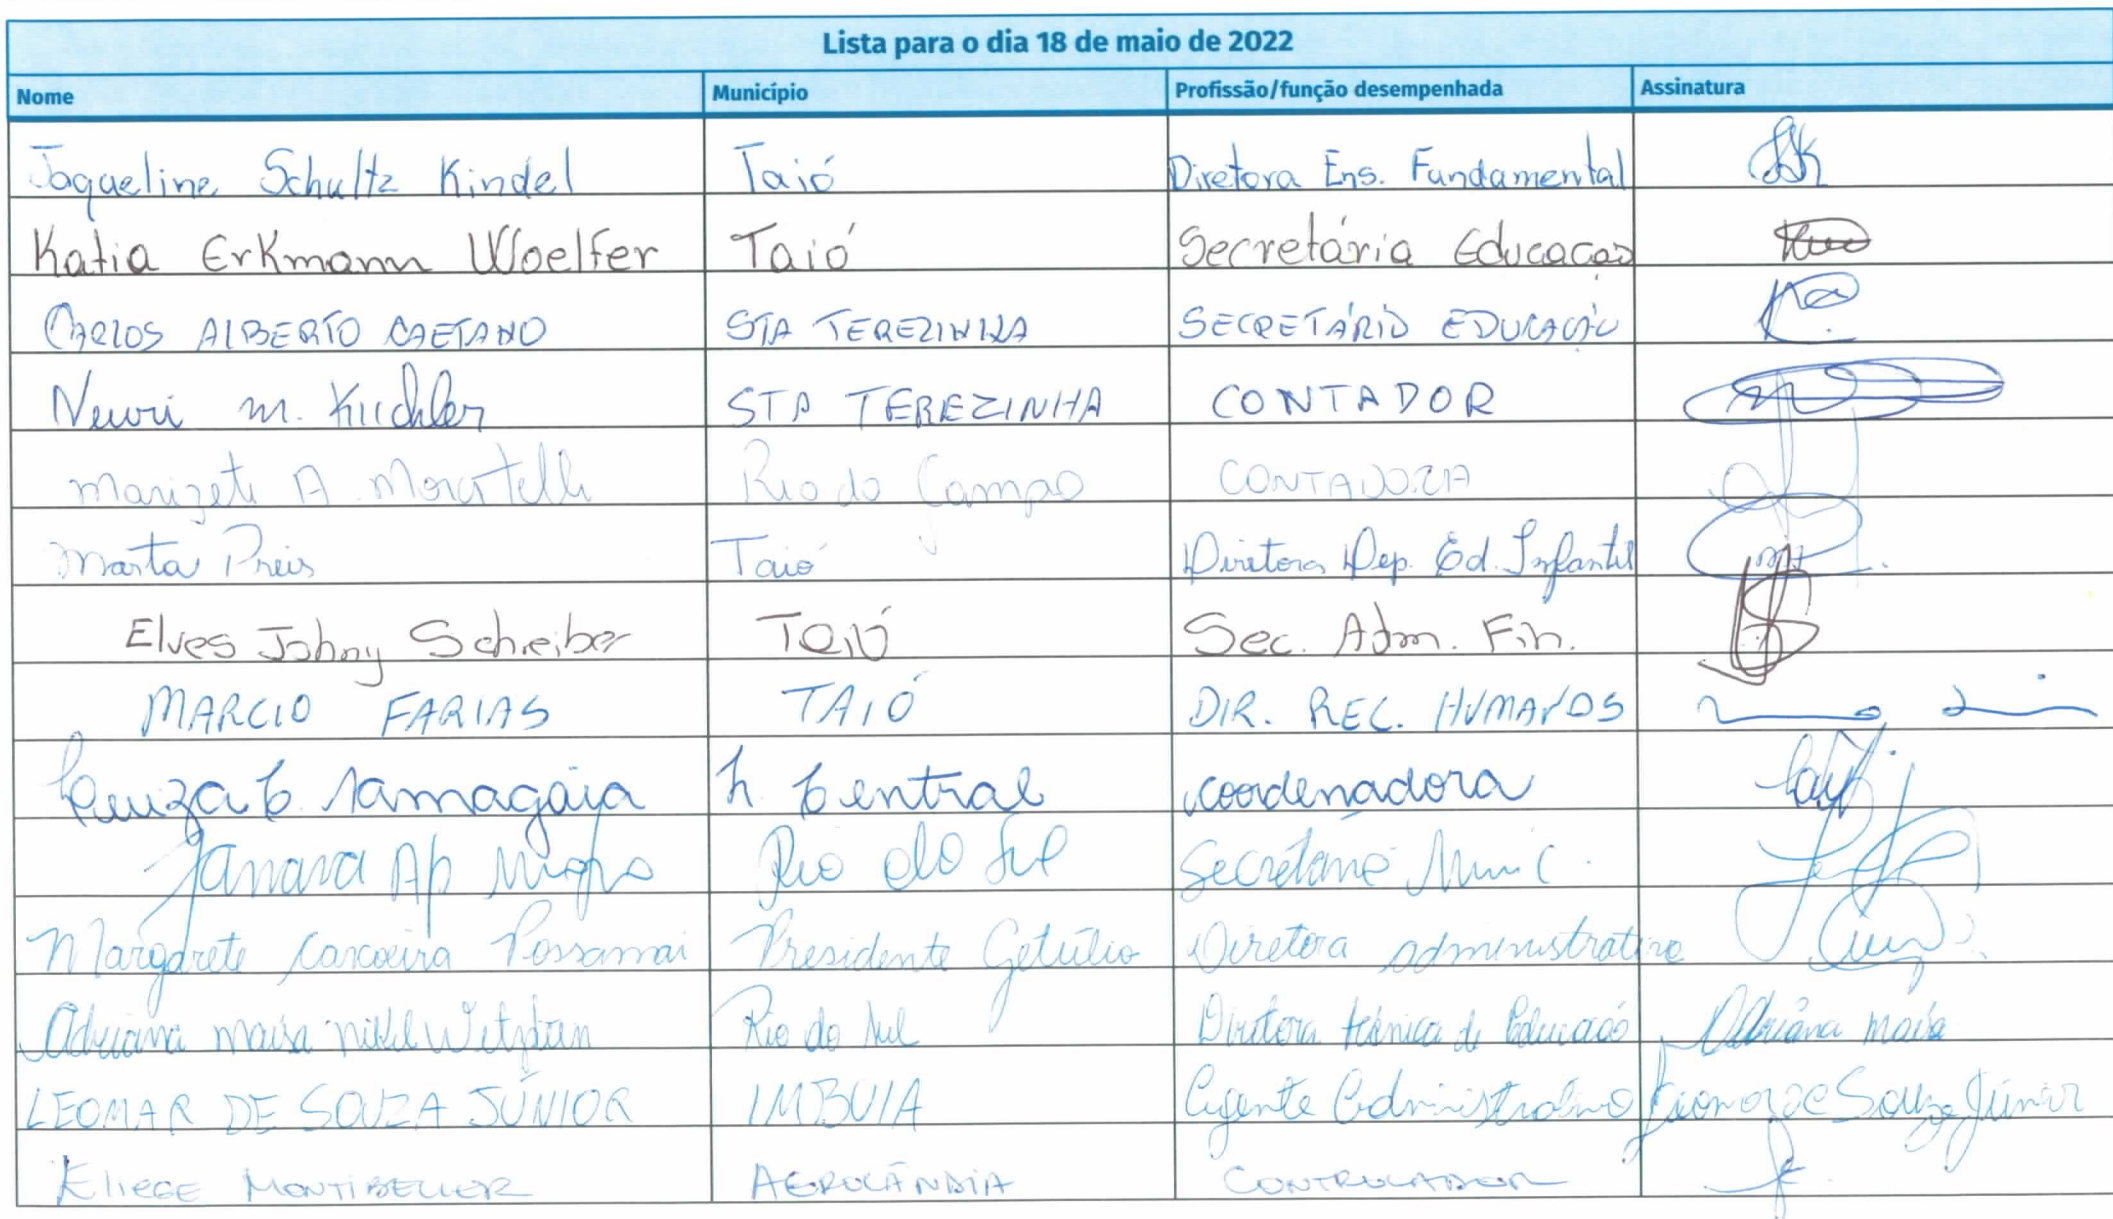 Lista para o dia 18 de maio de 2022
Nome Município Profissão/função desempenhada Assinatura
Jaqueline Schultz Kindel Taió Diretora Ens. Fundamental
Katia Erkmann Woelfer Taió Secretária Educacao
CARLOS ALBERTO CAETANO STA TEREZINHA SECRETÁRIO EDUCAÇÃO
Neuri m. Kuchler STA TEREZINHA CONTADOR
Marizeti A. Moratelli Rio do Campo CONTADORA
Marta Preis Taió Diretora Dep. Ed. Infantil
Elves Johny Scheiber Taió Sec. Adm. Fin.
MARCIO FARIAS TAIÓ DIR. REC. HUMANOS
Samagaia Central coordenadora
Janara Ap Rio do Sul Secretária Munic.
Margarete Possamai Presidente Getúlio Diretora administrativa
Adriana maisa Rio do Sul Diretora técnica de Educação Adriana maisa
LEOMAR DE SOUZA JÚNIOR IMBUIA Agente Administrativo Leomar de Souza Júnior
ELIEGE MONTIBELLER AGROLÂNDIA CONTROLADOR